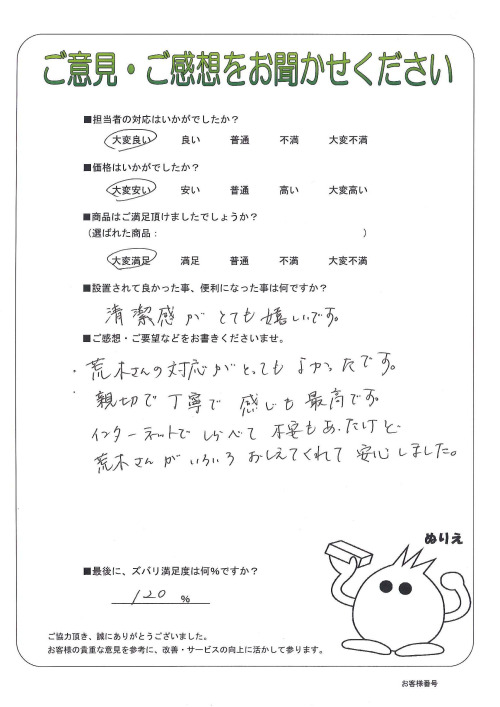 ご意見・ご感想をお聞かせください
■担当者の対応はいかがでしたか？
大変良い 良い 普通 不満 大変不満
■価格はいかがでしたか？
大変安い 安い 普通 高い 大変高い
■商品はご満足頂けましたでしょうか？
（選ばれた商品： ）
大変満足 満足 普通 不満 大変不満
■設置されて良かった事、便利になった事は何ですか？
清潔感がとても嬉しいです。
■ご感想・ご要望などをお書きくださいませ。
・荒木さんの対応がとってもよかったです。
・親切で丁寧で感じも最高です。
インターネットでしらべて不安もあったけど
荒木さんがいろいろおしえてくれて安心しました。
ぬりえ
■最後に、ズバリ満足度は何％ですか？
120 %
ご協力頂き、誠にありがとうございました。
お客様の貴重な意見を参考に、改善・サービスの向上に活かして参ります。
お客様番号